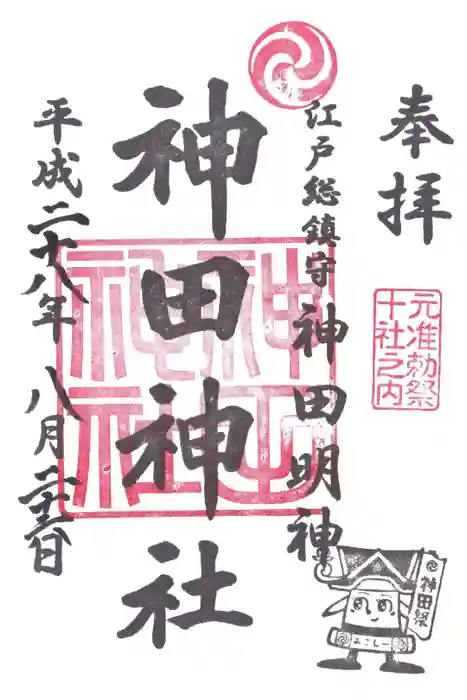 奉拝
元准勅祭
十社之内
江戸総鎮守 神田明神
神田神社
神田神社
平成二十八年 八月二十六日
神田祭
みこしー